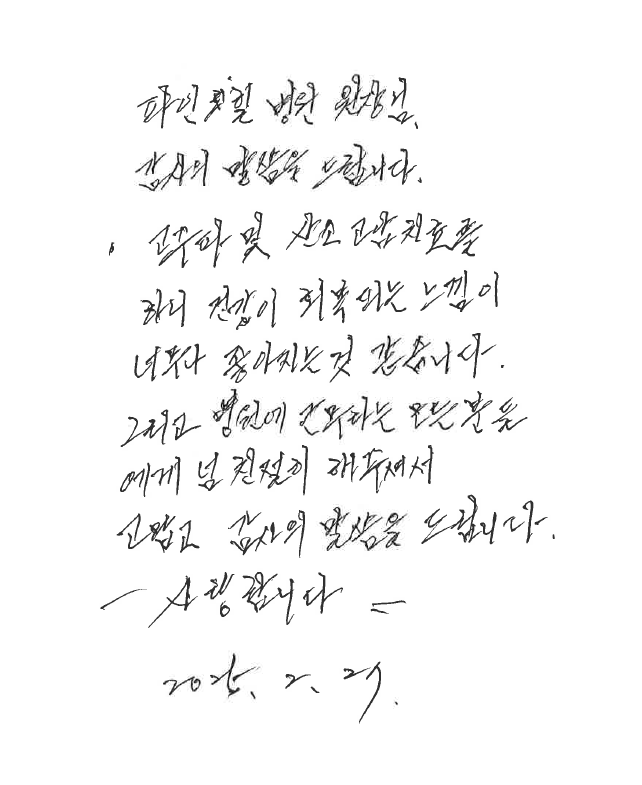 파인힐 병원 원장님.
감사의 말씀을 드립니다.
고주파 및 산소 고압치료를
하니 건강이 회복되는 느낌이
너무나 좋아지는것 같습니다.
그리고 병원에 근무하는 모든분들
에게 넘 친절히 해주셔서
고맙고 감사의 말씀을 드립니다.
- 사랑합니다 =
2025. 2.